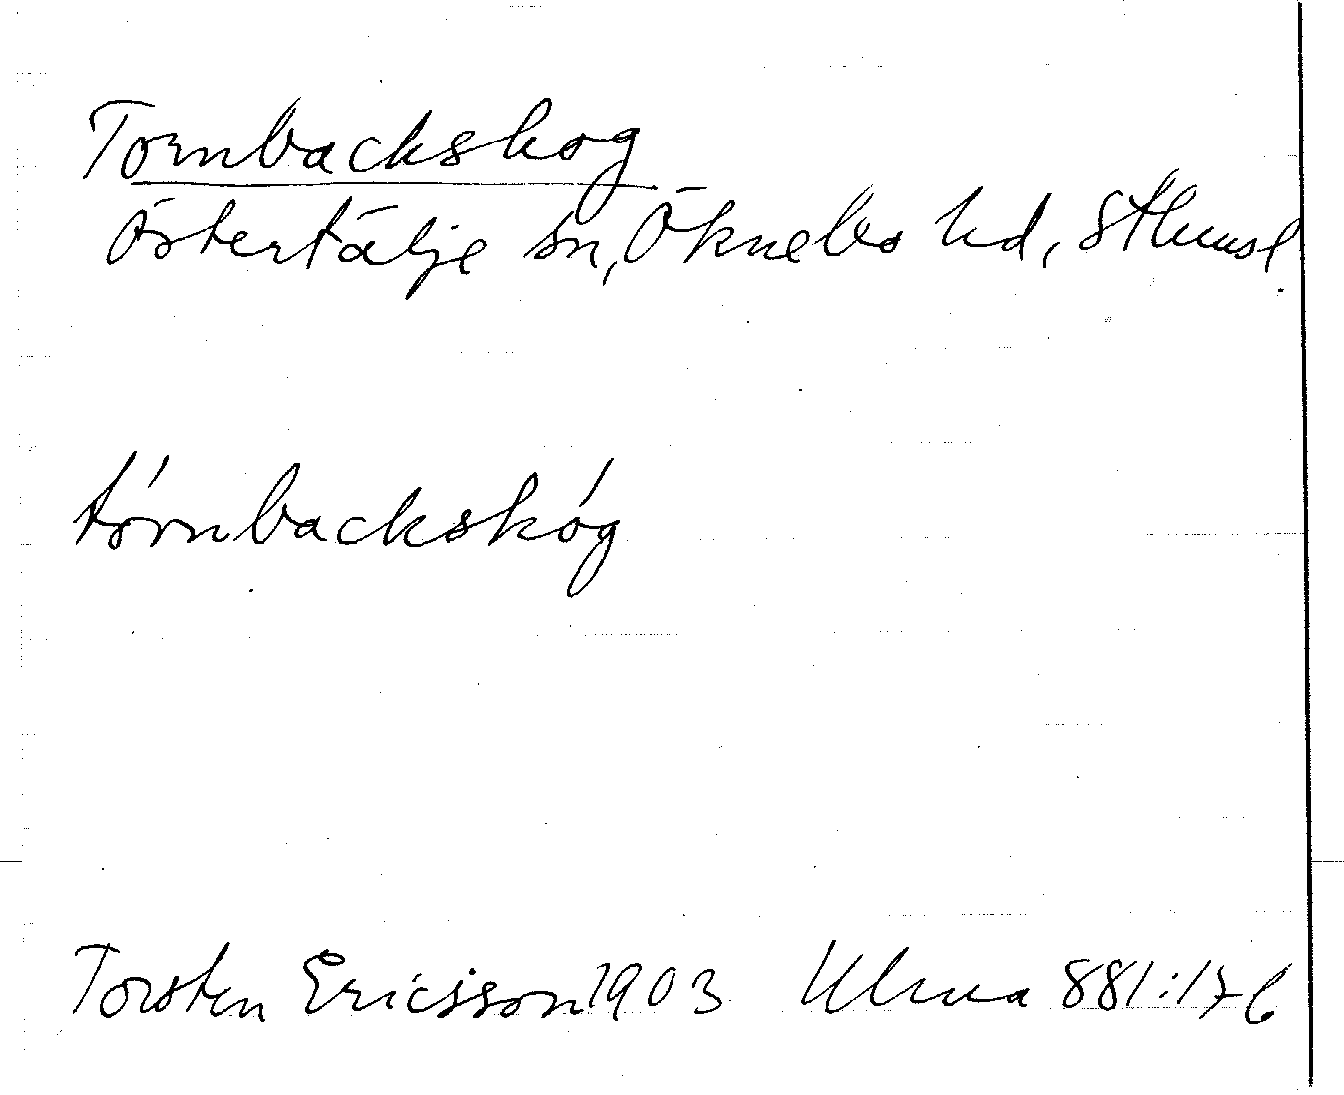 Tornbackskog
Östertälje sn, Öknebo hd, Sthmsl
tórnbackskóg
Torsten Ericsson 1903 Ulma 881:176